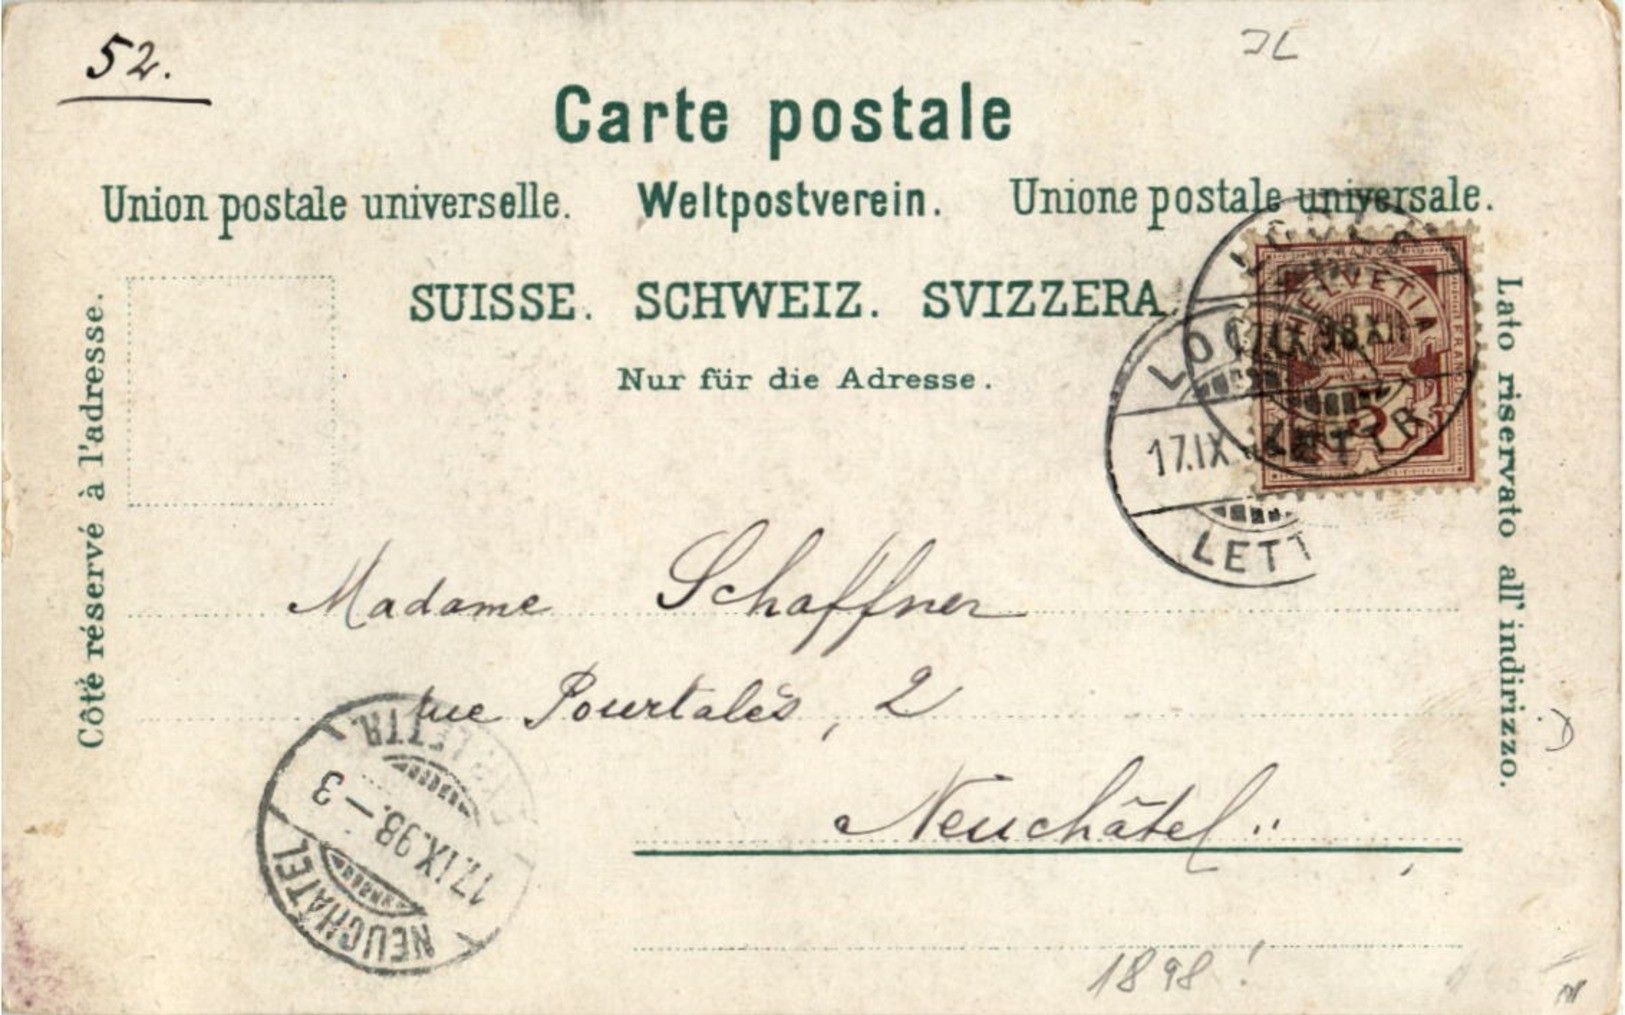 52.
Carte postale
Union postale universelle. Weltpostverein. Unione postale universale.
SUISSE. SCHWEIZ. SVIZZERA.
Nur für die Adresse.
Côté réservé à l'adresse.
Lato riservato all' indirizzo.
HELVETIA
FRANCO
5
17.IX.98.XII
LETTR.
17.IX.
LETT
Madame Schaffner
rue Pourtalès, 2
Neuchâtel
NEUCHÂTEL
17.IX.98.–3
LETTR.
1898!